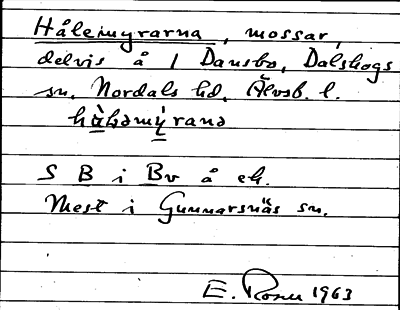 Hålemyrarna, mossar,
delvis å 1 Dansbo, Dalskogs
sn, Nordals hd, Älvsb. l.
hå̀ləmý̀rana
S B i Bv å ek.
Mest i Gunnarsnäs sn.
E. Rosell 1963